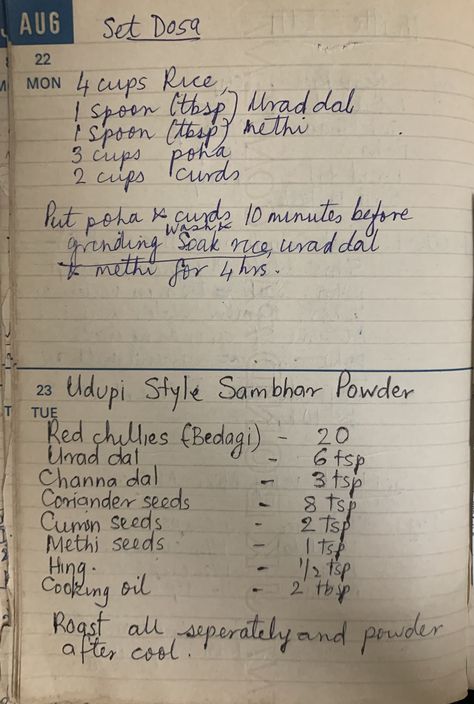 AUG
Set Dosa
22
MON
4 cups Rice
1 spoon (tbsp) Urad dal
1 spoon (tbsp) methi
3 cups poha
2 cups curds
Put poha & curds 10 minutes before
grinding Wash & Soak rice, urad dal
& methi for 4 hrs.
23 Udupi Style Sambhar Powder
TUE
Red chillies (Bedagi) - 20
Urad dal - 6 tsp
Channa dal - 3 tsp
Coriander seeds - 8 tsp
Cumin seeds - 2 tsp
Methi seeds - 1 tsp
Hing. - 1/2 tsp
Cooking oil - 2 tbsp
Roast all seperately and powder
after cool.